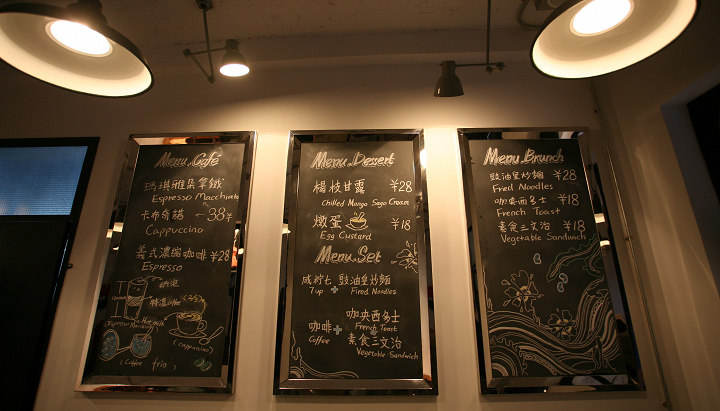 Menu.Café
瑪琪雅朵拿鐵
Espresso Macchiato
卡布奇諾 38¥
Cappuccino
義式濃縮咖啡 ¥28
Espresso
Espresso Macchiato
Hot milk
(cappuccino)
(Coffee trio)
Menu.Dessert
楊枝甘露 ¥28
Chilled Mango Sago Cream
燉蛋 ¥18
Egg Custard
Menu.Set
咸柠七 豉油皇炒麵
7up + Fired Noodles
咖啡 + 咖央西多士
Coffee French Toast
+ 素食三文治
Vegetable Sandwich
Menu.Brunch
豉油皇炒麵 ¥28
Fired Noodles
咖央西多士 ¥18
French Toast
素食三文治 ¥18
Vegetable Sandwich